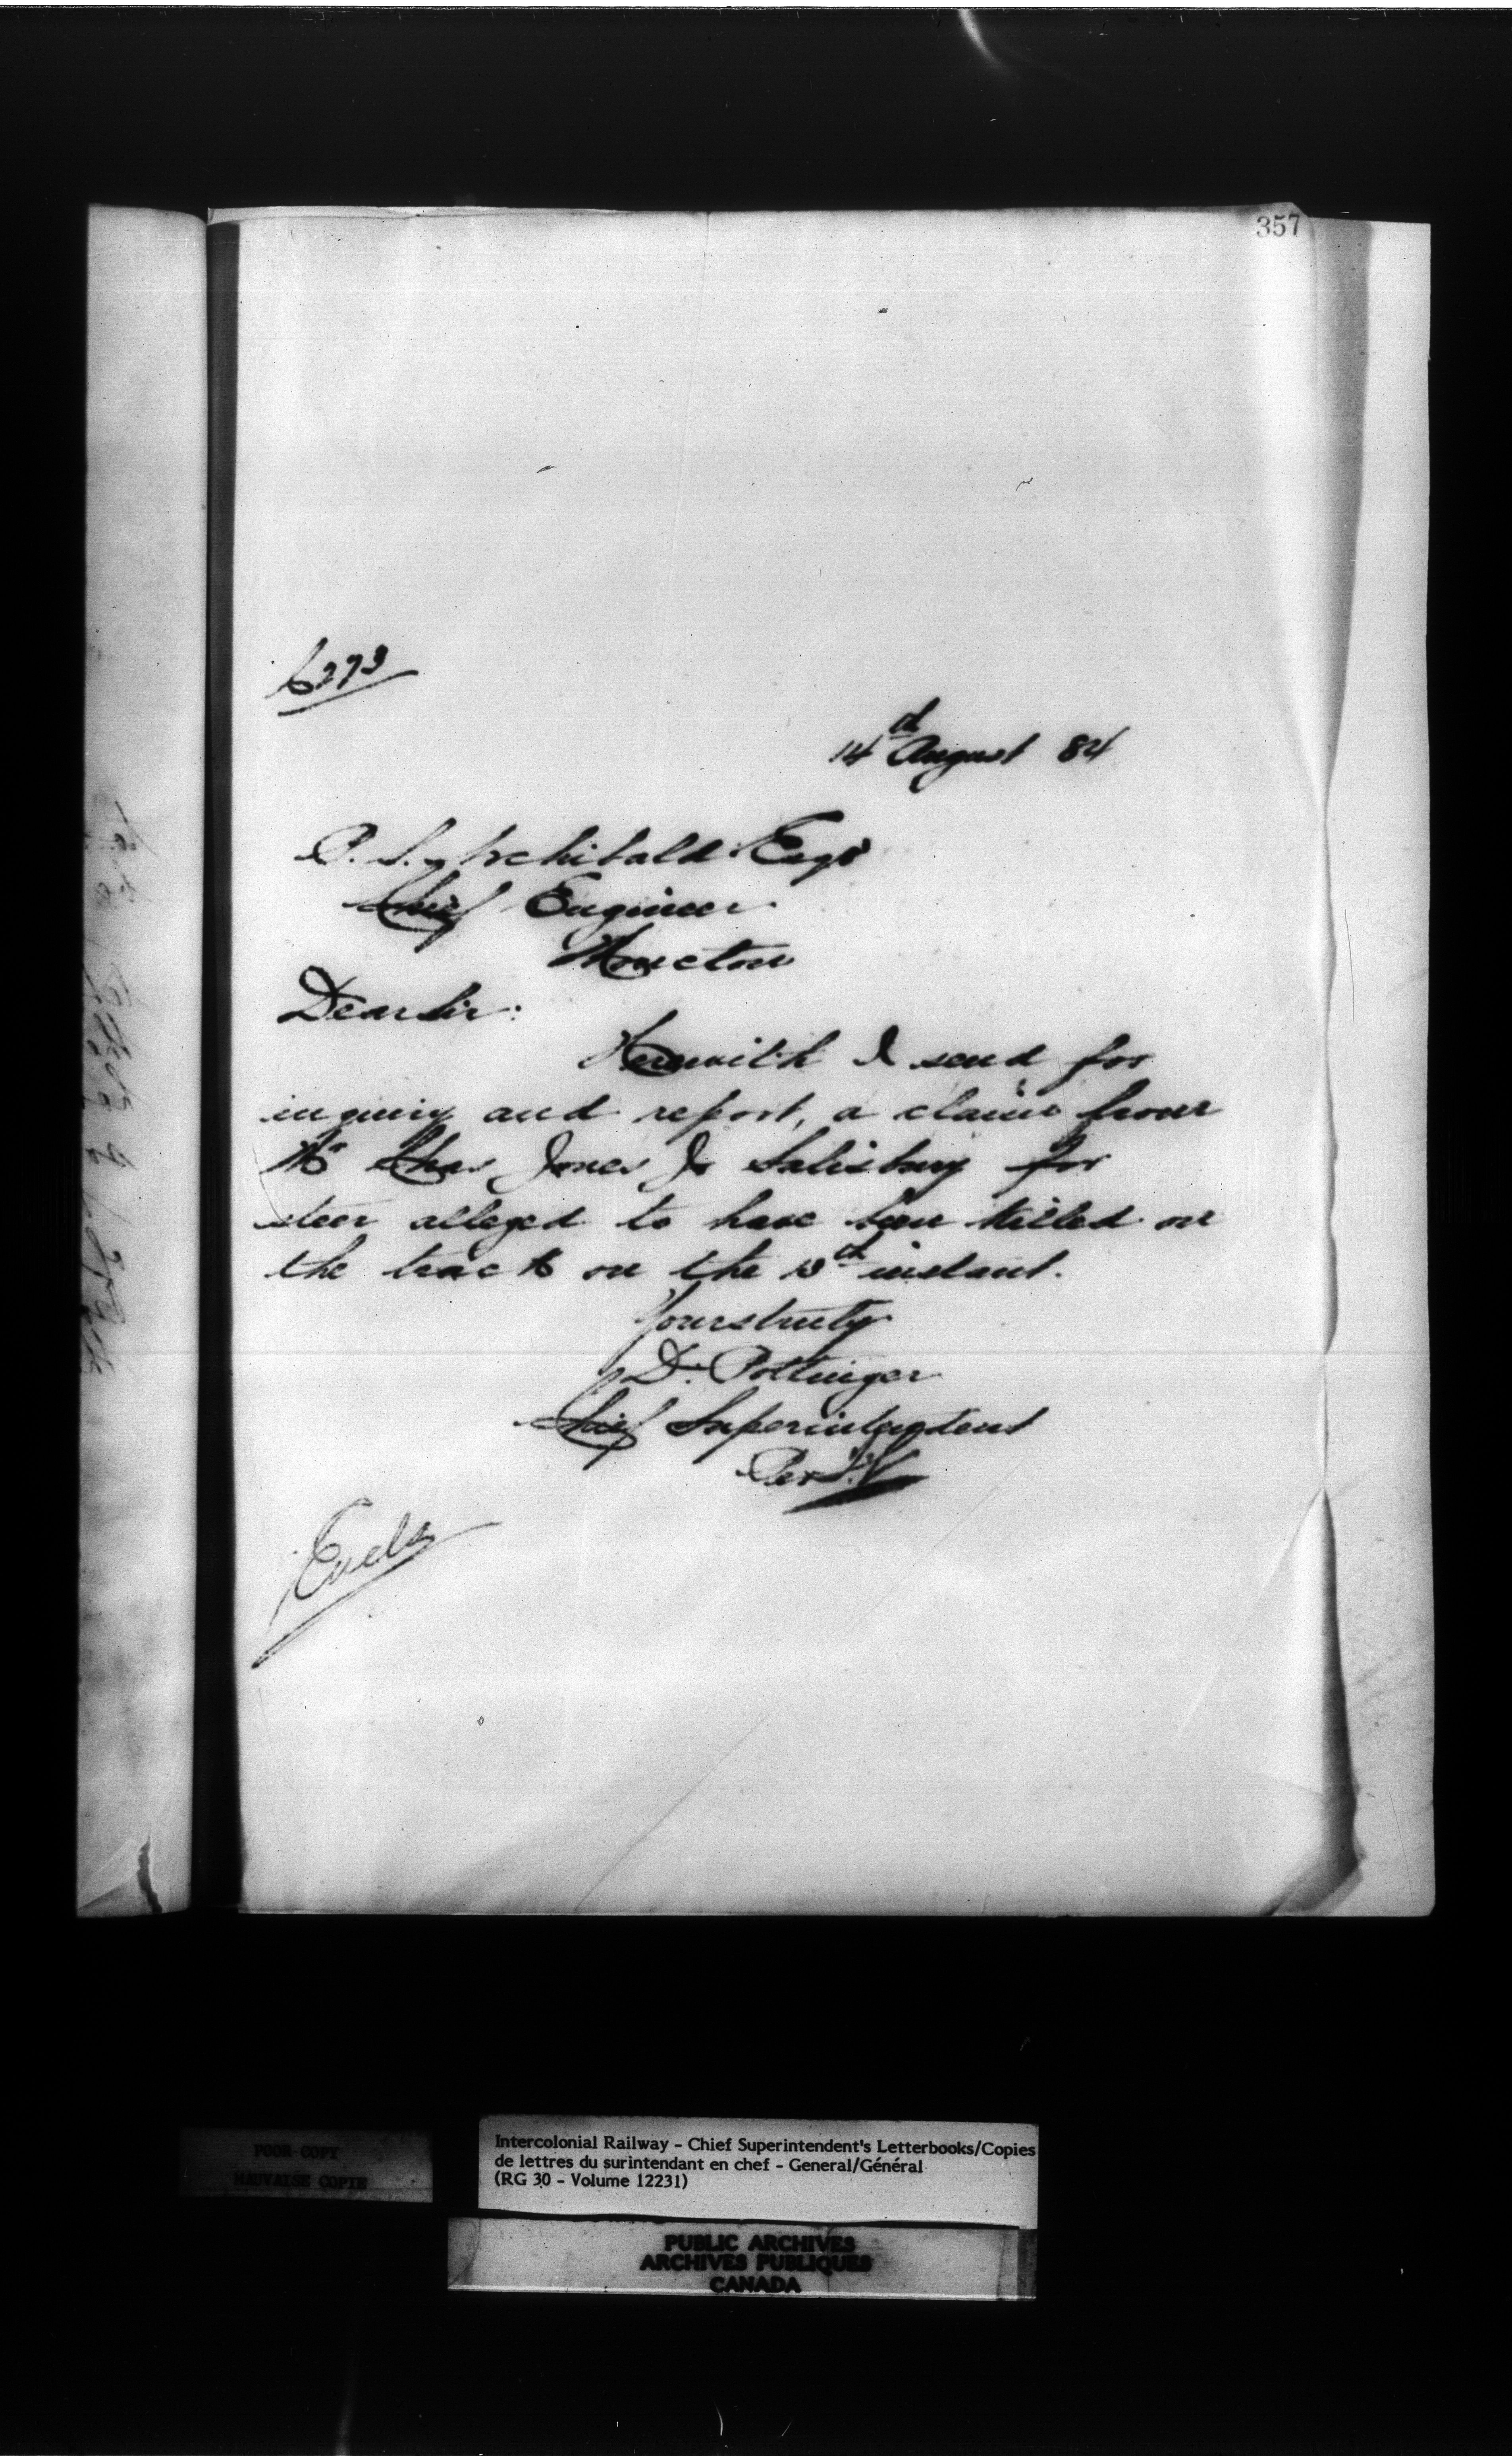 357
6273
14th August 84
P. S. Archibald Esqr
Chief Engineer
Moncton
Dear Sir:
Herewith I send for
inquiry and report, a claim from
Mr Chas Jones Jr Salisbury for
steer alleged to have been killed on
the track on the 13th instant.
Yours truly
D. Pottinger
Chief Superintendent
Per
Encls
POOR COPY
MAUVAISE COPIE
Intercolonial Railway - Chief Superintendent's Letterbooks/Copies
de lettres du surintendant en chef - General/Général
(RG 30 - Volume 12231)
PUBLIC ARCHIVES
ARCHIVES PUBLIQUES
CANADA